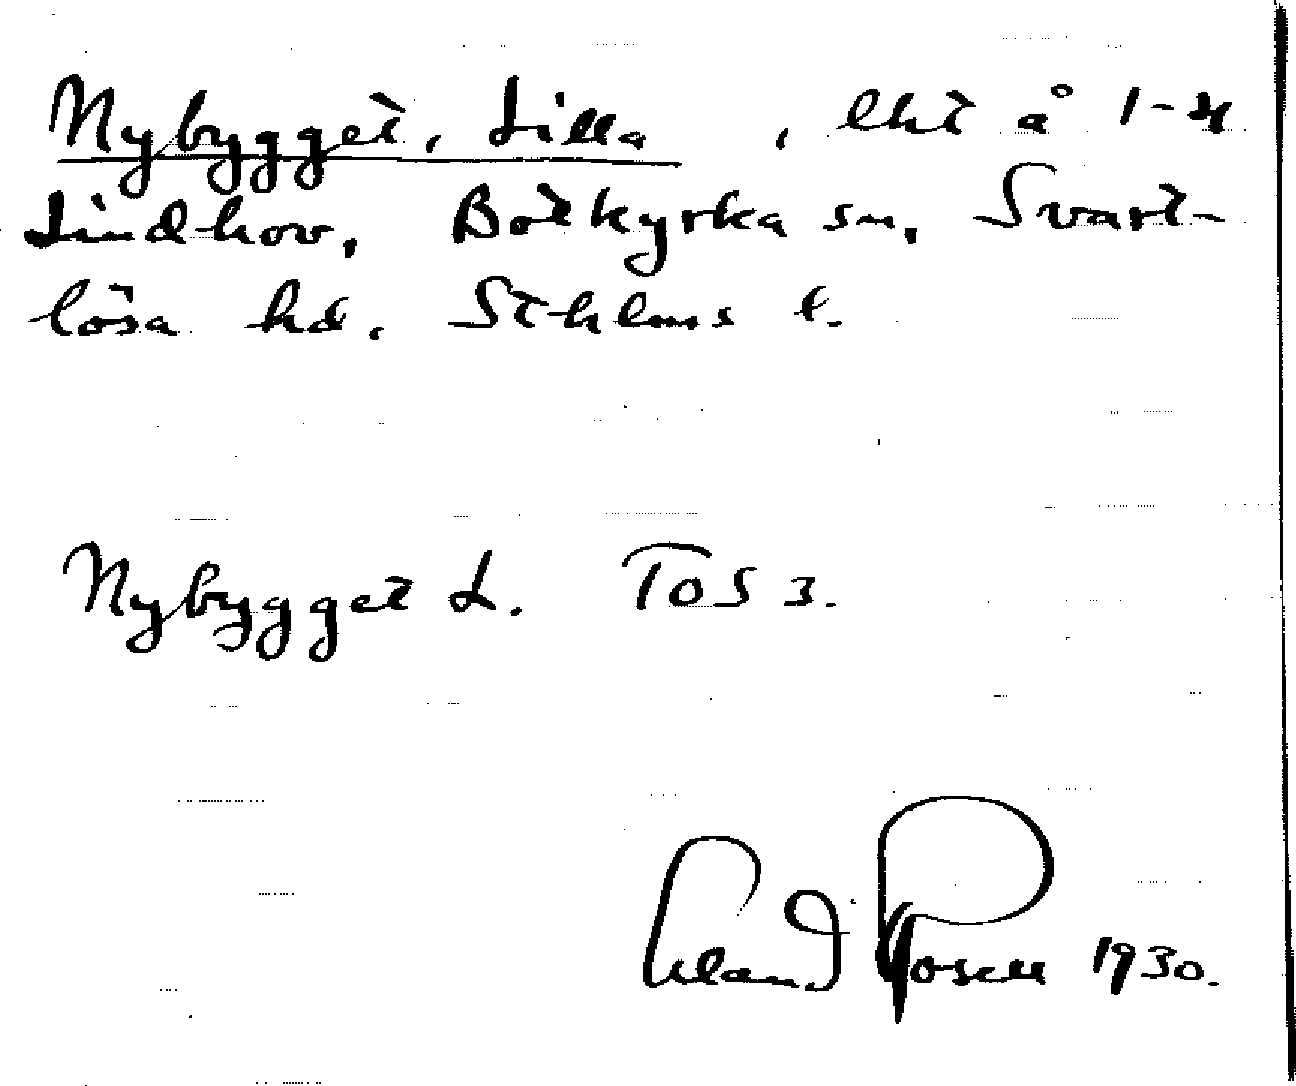 Nybygget, Lilla, lht å 1-4
Lindhov, Botkyrka sn, Svart-
lösa hd. Sthlms l.
Nybygget L. TOS 3.
Rosell 1930.